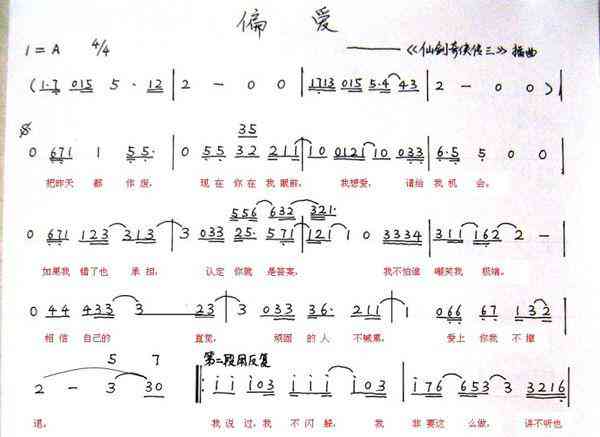 偏爱
1=A 4/4 ——《仙剑奇侠传三》插曲
(1·7 015 5·12 | 2 - 0 0 | 1713 015 5·4 43 | 2 - 0 0 )|
35
0 671 1 55· | 0 55 32 211 | 10 0121 10 033 | 6·5 5 0 0 |
把昨天 都 作废, 现在 你在 我 眼前, 我想爱, 请给 我 机 会。
556 632 321·
0 671 123 313 | 3 033 25· 571 | 121 1 0 3334 | 311 162 2 - |
如果我 错了也 承担, 认定 你就 是答案, 我不怕谁 嘲笑我 极端。
0 44 433 3 23 | 3 033 36· 211 | 1 066 67 132 |
相信 自己的 直觉, 顽固 的人 不喊累, 爱上 你我 不撤
5 7 第二段用反复
2 - 3 30 ‖: i i i03 i i i | i03 | i76 653 3 3216 |
退。 我 说 过, 我 不 闪 躲, 我 非 要这 么做, 讲不听也